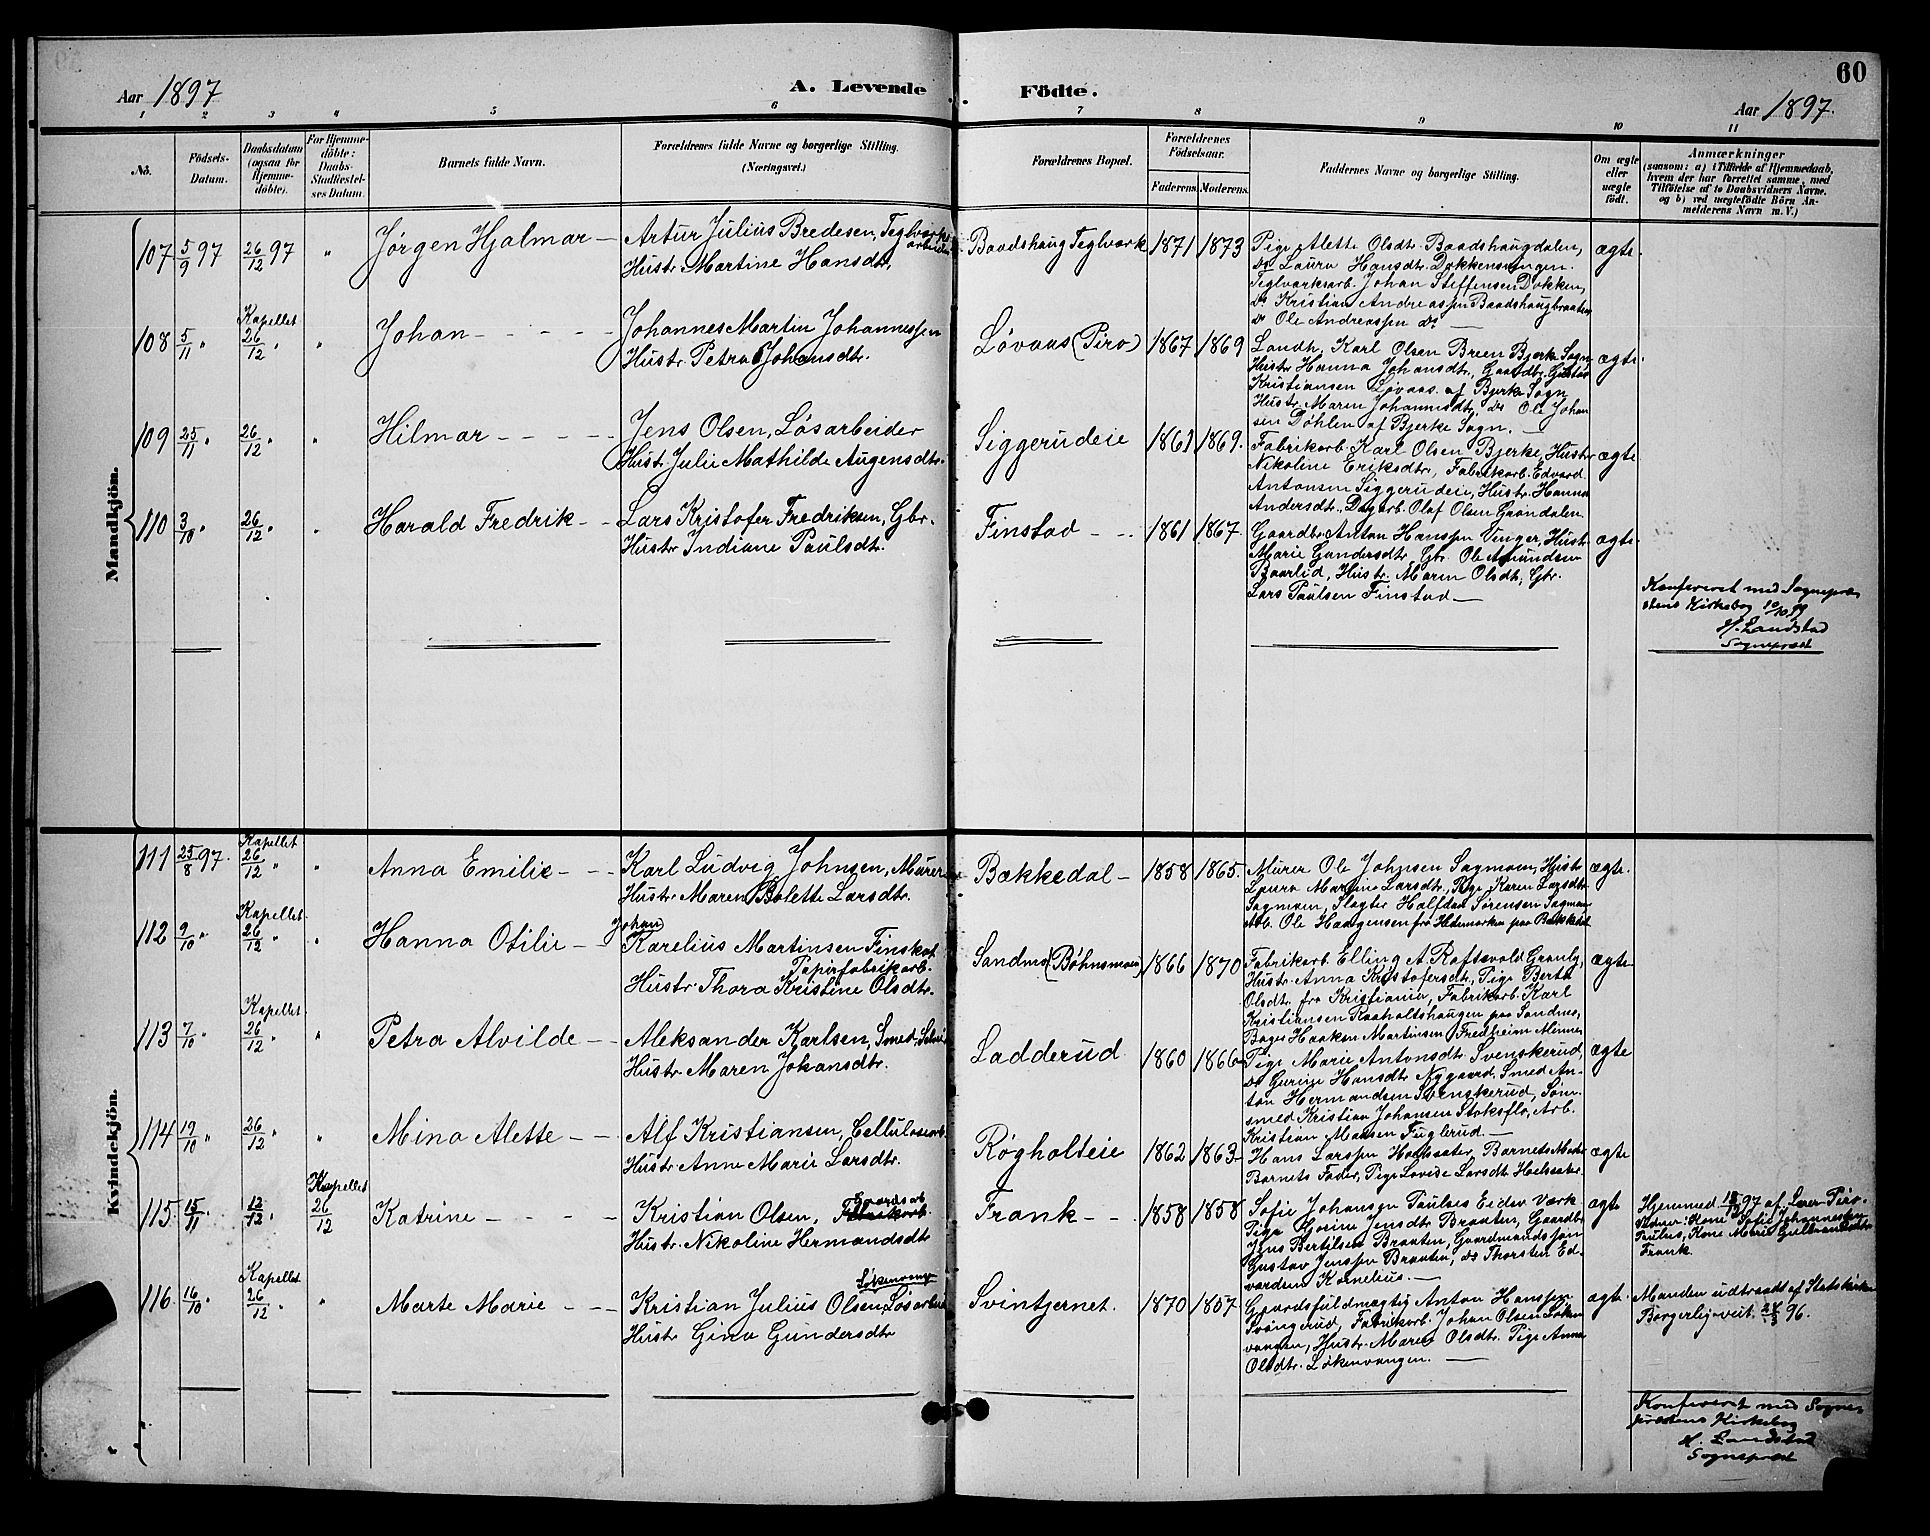 60
Aar 1897
A. Levende
Födte.
Aar 1897.
1 2 3 4 5 6 7 8 9 10 11
No.
Födsels-
Datum.
Daabsdatum
(ogsaa for
Hjemme-
döbte).
For Hjemme-
döbte:
Daabs-
Stadfæstel-
ses Datum.
Barnets fulde Navn.
Forældrenes fulde Navne og borgerlige Stilling.
(Næringsvei.)
Forældrenes Bopæl.
Forældrenes
Födselsaar.
Faderens. Moderens.
Faddernes Navne og borgerlige Stilling.
Om ægte
eller
uægte
født.
Anmærkninger
(saasom: a) i Tilfælde af Hjemmedaab,
hvem der har forrettet samme, med
Tilføielse af to Daabsvidners Navne.
og b) ved uægtefödte Börn An-
melderens Navn m. V.)
Mandkjön.
107 5/9 97 26/12 97 " Jørgen Hjalmar — Artur Julius Bredesen, Teglværks
arbeider
Hustr. Martine Hansdtr.
Baadshaug Teglværk 1871 1873
Pige Alette Olsdtr. Baadshaugdalen,
do Laura Hansdtr. Dokkensvingen.
Teglværksarb. Johan Steffensen Dokken,
do Kristian Andreassen Baadshaugbraaten
do Ole Andreassen do —
ægte
Kapellet
108 5/11 " 26/12 " " Johan - - - - Johannes Martin Johannessen
Hustr. Petra Johansdtr.
Løvaas (Piro) 1867 1869
Landh. Karl Olsen Breen Bjerke Sogn
Hustr. Hanna Johansdtr., Gaardbr. Gustav
Kristiansen Løvaas af Bjerke Sogn
Hustr. Maren Johannesdtr., do Ole Johan
sen Døhlen af Bjerke Sogn. —
ægte
109 25/11 " 26/12 " " Hilmar - - - - Jens Olsen, Løsarbeider
Hustr. Julie Mathilde Augensdtr.
Siggerudeie 1863 1869.
Fabrikarb. Karl Olsen Bjerke, Hustr
Nikoline Eriksdtr., Fabrikarb. Edvard
Antonsen Siggerudeie, Hustr. Hanna
Andersdtr., Dagarb. Olaf Olsen Grøndalen
ægte
110 3/10 " 26/12 " " Harald Fredrik - - Lars Kristofer Fredriksen, Gbr.
Hustr. Indiane Paulsdtr.
Finstad - - 1861 1867.
Gaardbr. Anton Hanssen Vinger, Hustr
Marie Gundersdtr., Gbr. Ole Amundsen
Baarlid, Hustr. Maren Olsdtr., Gbr.
Lars Paulsen Finstad —
ægte
Konfereret med Sognepræ
stens Kirkebog 10/10 99
H. Landstad
Sognepræst
Kvindekjön.
Kapellet
111 25/8 97. 26/12 " " Anna Emilie - - - Karl Ludvig Johnsen, Murer
Hustr. Maren Bolette Larsdtr.
Bækkedal - 1858 1865.
Murer Ole Johnsen Sagmoen, Hustr
Laura Martine Larsdtr., Pige Karen Larsdtr
Sagmoen, Slagter Halfdan Sørensen Sagmoen
Arb. Ole Haagensen fra Hedemarken paa Bækkedal
ægte.
Kapellet
112 9/10 " 26/12 " " Hanna Otilie - -
Johan
Karelius Martinsen Finskot
Papirfabrikarb.
Hustr. Thora Kristine Olsdtr.
Sandmo (Bøhnsmoen) 1866 1870
Fabrikarb. Elling A. Raftevold Granly,
Hustr. Anna Kristofersdtr., Pige Berthe
Olsdtr. fra Kristiania, Fabrikarb. Karl
Kristiansen Raaholtshaugen paa Sandnes,
Bager Haakon Martinsen Fredheim Minne
ægte
Kapellet
113 7/10 " 26/12 " " Petra Alvilde - - Aleksander Karlsen, Smed, Selvei
Hustr. Maren Johansdtr.
Ladderud 1860 1866
Pige Marie Antonsdtr. Svenskerud,
do Gurine Hansdtr. Nygaard, Smed An-
ton Hermandsen Svenskerud, Søm-
smed Kristian Johansen Stoksflo, Arb.
Kristian Madsen Fuglerud. —
ægte
114 19/10 " 26/12 " " Mina Alette - - Alf Kristiansen, Cellulosearb.
Hustr. Anne Marie Larsdtr.
Røgholteie 1862 1863
Hans Larssen Holsæter, Barnets Moder
Barnets Fader, Pige Lovise Larsdtr Holsæter
ægte
Kapellet
115 15/11 12/12 26/12 Katrine - - - - Kristian Olsen, Gaardsarb
Fabrikarb.
Hustr. Nikoline Hermandsdtr
Frank - - 1858 1858
Sofie Johansen Paulses Eidsv Værk
Pige Gosine Jensdtr. Braaten, Gaardbr
Jens Bertilsen Braaten, Gaardmandssøn
Gustav Jenssen Braaten, do Thorsten Ed-
vardsen Kornelius. —
ægte
Hjemmed. 12/12 97 af Lærer Piro.
Vidner: Kone Sofie Johannessen
Paulus, Kone Marie Gulbrandsdtr
Frank.
Kapellet
116. 16/10 " 26/12 " " Marte Marie - - - Kristian Julius Olsen, Løsarbeid
Løkenvang
Hustr. Gina Gundersdtr
Svintjernet. 1870 1857
Gaardsfuldmægtig Anton Hanssen
Svingerud, Fabrikarb. Johan Olsen Løken
vangen, Hustr. Maren Olsdtr. Pige Anna
Olsdtr. Løkenvangen. —
ægte.
Manden udtraadt af Statskirken
Borgerlig viet. 24/3 96.
Konfereret med Sogne-
præstens Kirkebog
H. Landstad
Sognepræst